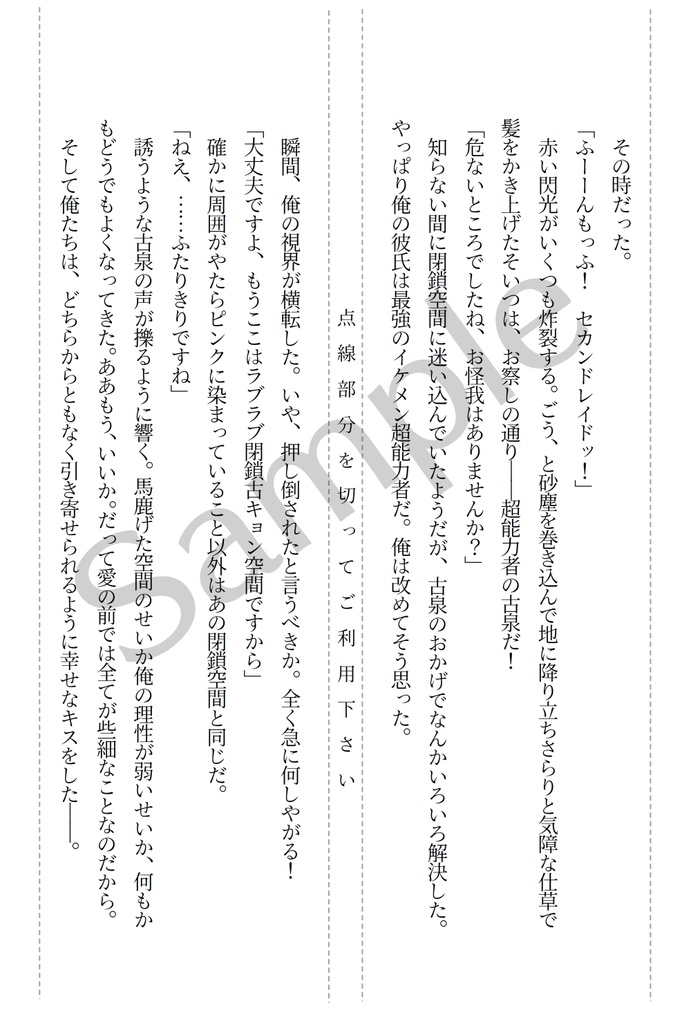 その時だった。
「ふーーんもっふ！　セカンドレイドッ！」
赤い閃光がいくつも炸裂する。ごう、と砂塵を巻き込んで地に降り立ちさらりと気障な仕草で
髪をかき上げたそいつは、お察しの通り――超能力者の古泉だ！
「危ないところでしたね、お怪我はありませんか？」
知らない間に閉鎖空間に迷い込んでいたようだが、古泉のおかげでなんかいろいろ解決した。
やっぱり俺の彼氏は最強のイケメン超能力者だ。俺は改めてそう思った。
点線部分を切ってご利用下さい
瞬間、俺の視界が横転した。いや、押し倒されたと言うべきか。全く急に何しやがる！
「大丈夫ですよ、もうここはラブラブ閉鎖古キョン空間ですから」
確かに周囲がやたらピンクに染まっていること以外はあの閉鎖空間と同じだ。
「ねえ、……ふたりきりですね」
誘うような古泉の声が擽るように響く。馬鹿げた空間のせいか俺の理性が弱いせいか、何もか
もどうでもよくなってきた。ああもう、いいか。だって愛の前では全てが些細なことなのだから。
そして俺たちは、どちらからともなく引き寄せられるように幸せなキスをした――。
Sample